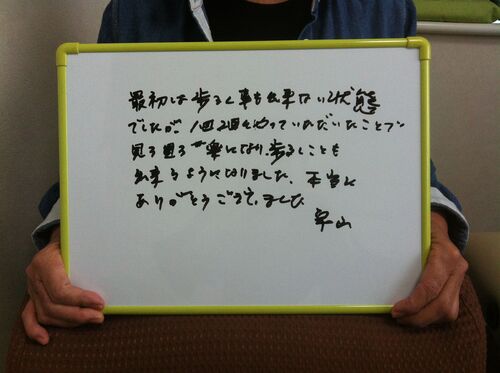 最初は歩るく事も出来ない状態
でしたが、1回2回とやっていただいたことで
見る見る楽になり、歩るくことも
出来るようになりました、本当に
ありがとうございました